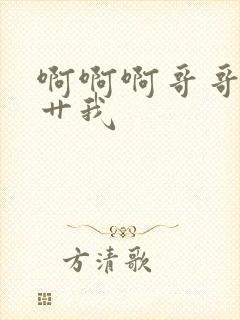 啊啊啊哥哥
艹我
方清歌